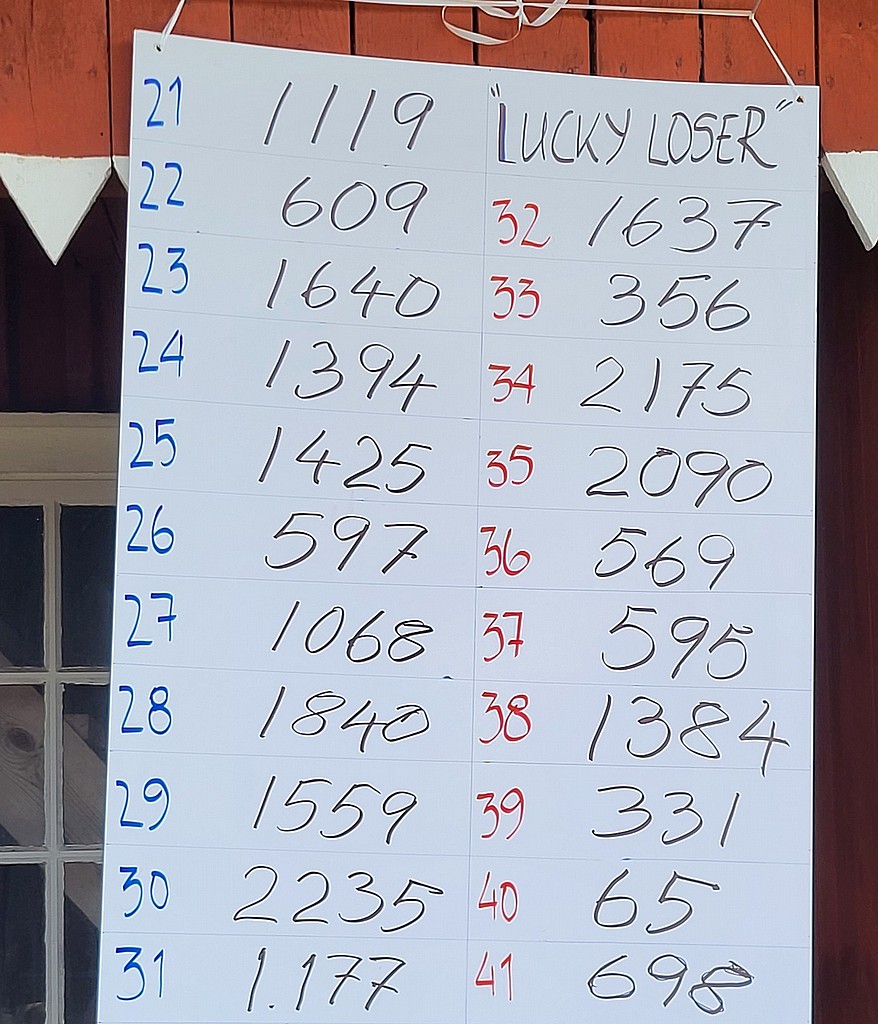 21 1119 "LUCKY LOSER"
22 609 32 1637
23 1640 33 356
24 1394 34 2175
25 1425 35 2090
26 597 36 569
27 1068 37 595
28 1840 38 1384
29 1559 39 331
30 2235 40 65
31 1.177 41 698